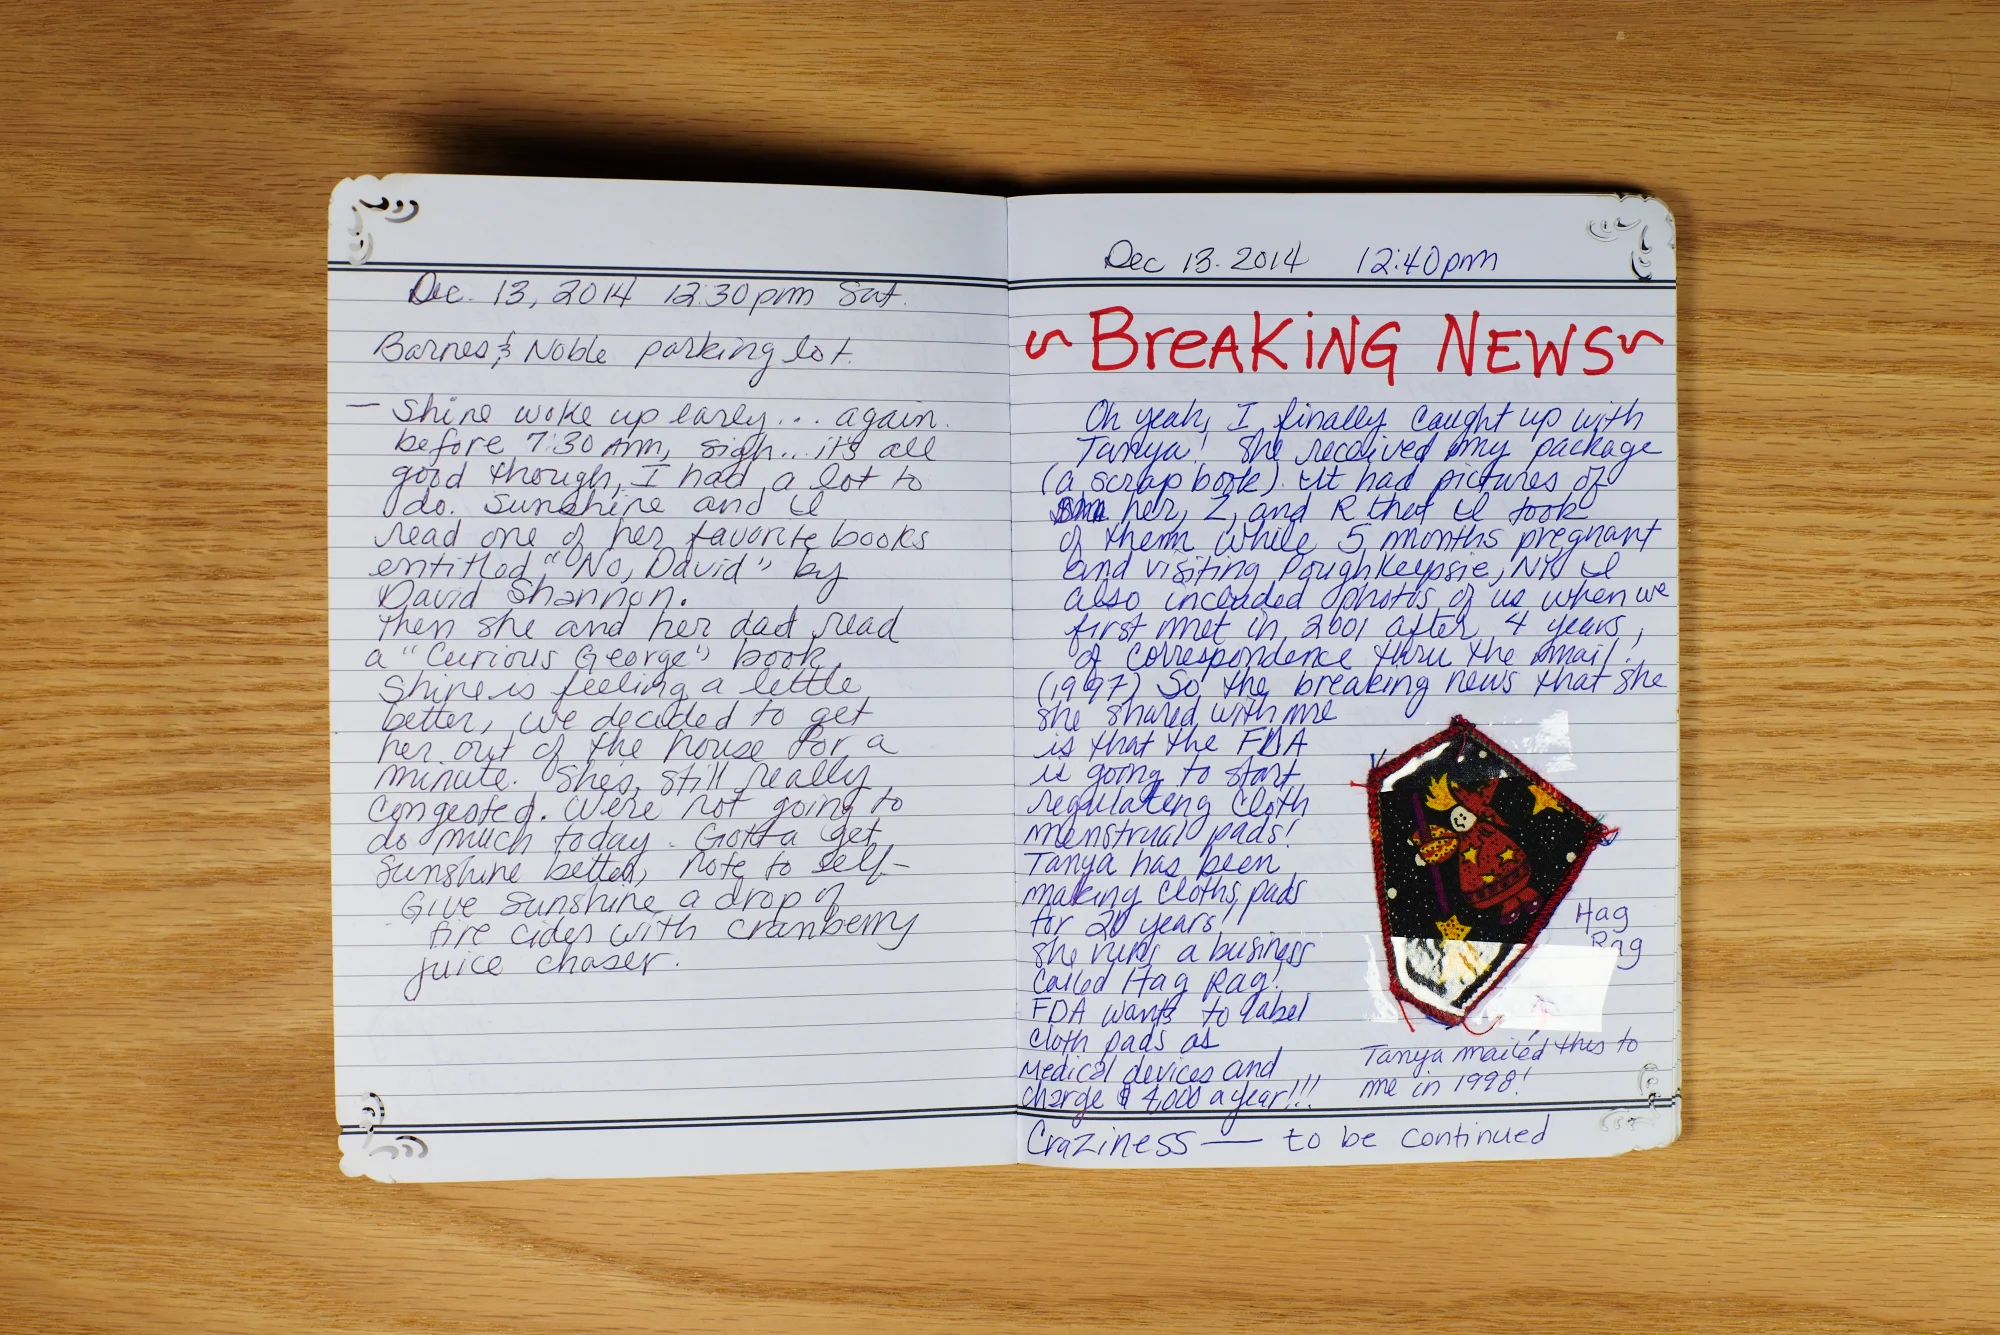 Dec. 13, 2014 12:30pm Sat.
Barnes & Noble parking lot.
— Shine woke up early... again.
before 7:30 Am, sigh... it's all
good though, I had a lot to
do. Sunshine and I
read one of her favorite books
entitled "No, David" by
David Shannon.
Then she and her dad read
a "Curious George" book.
Shine is feeling a little
better, we decided to get
her out of the house for a
minute. She's still really
congested. We're not going to
do much today. Gotta get
Sunshine better, note to self-
Give Sunshine a drop of
fire cider with cranberry
juice chaser.
Dec 13. 2014 12:40pm
~ BreAKiNG NEWS ~
Oh yeah, I finally caught up with
Tanya! She received my package
(a scrap book). It had pictures of
her, Z, and R that I took
of them while 5 months pregnant
and visiting Poughkeepsie, NY. I
also included photos of us when we
first met in 2001 after 4 years,
of correspondence thru the mail.
(1997) So the breaking news that she
she shared with me
is that the FDA
is going to start
regulating cloth
menstrual pads!
Tanya has been
making cloths pads
for 20 years!
she runs a business
called Hag Rag!
FDA wants to label
cloth pads as
Medical devices and
charge $ 4,000 a year!!!
Hag
Rag
Tanya mailed this to
me in 1998!
Craziness — to be continued